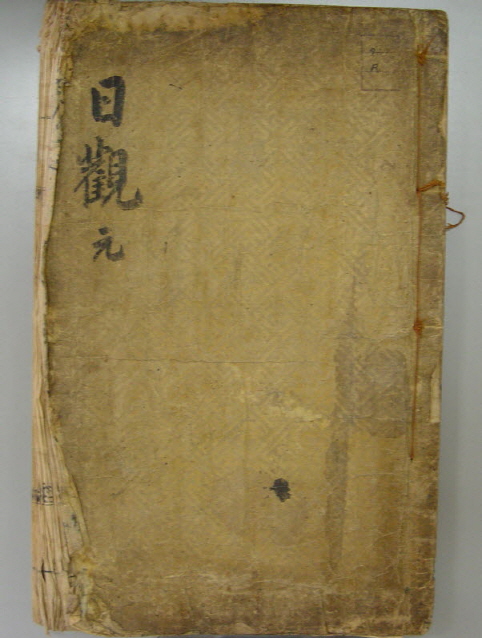 日觀
元